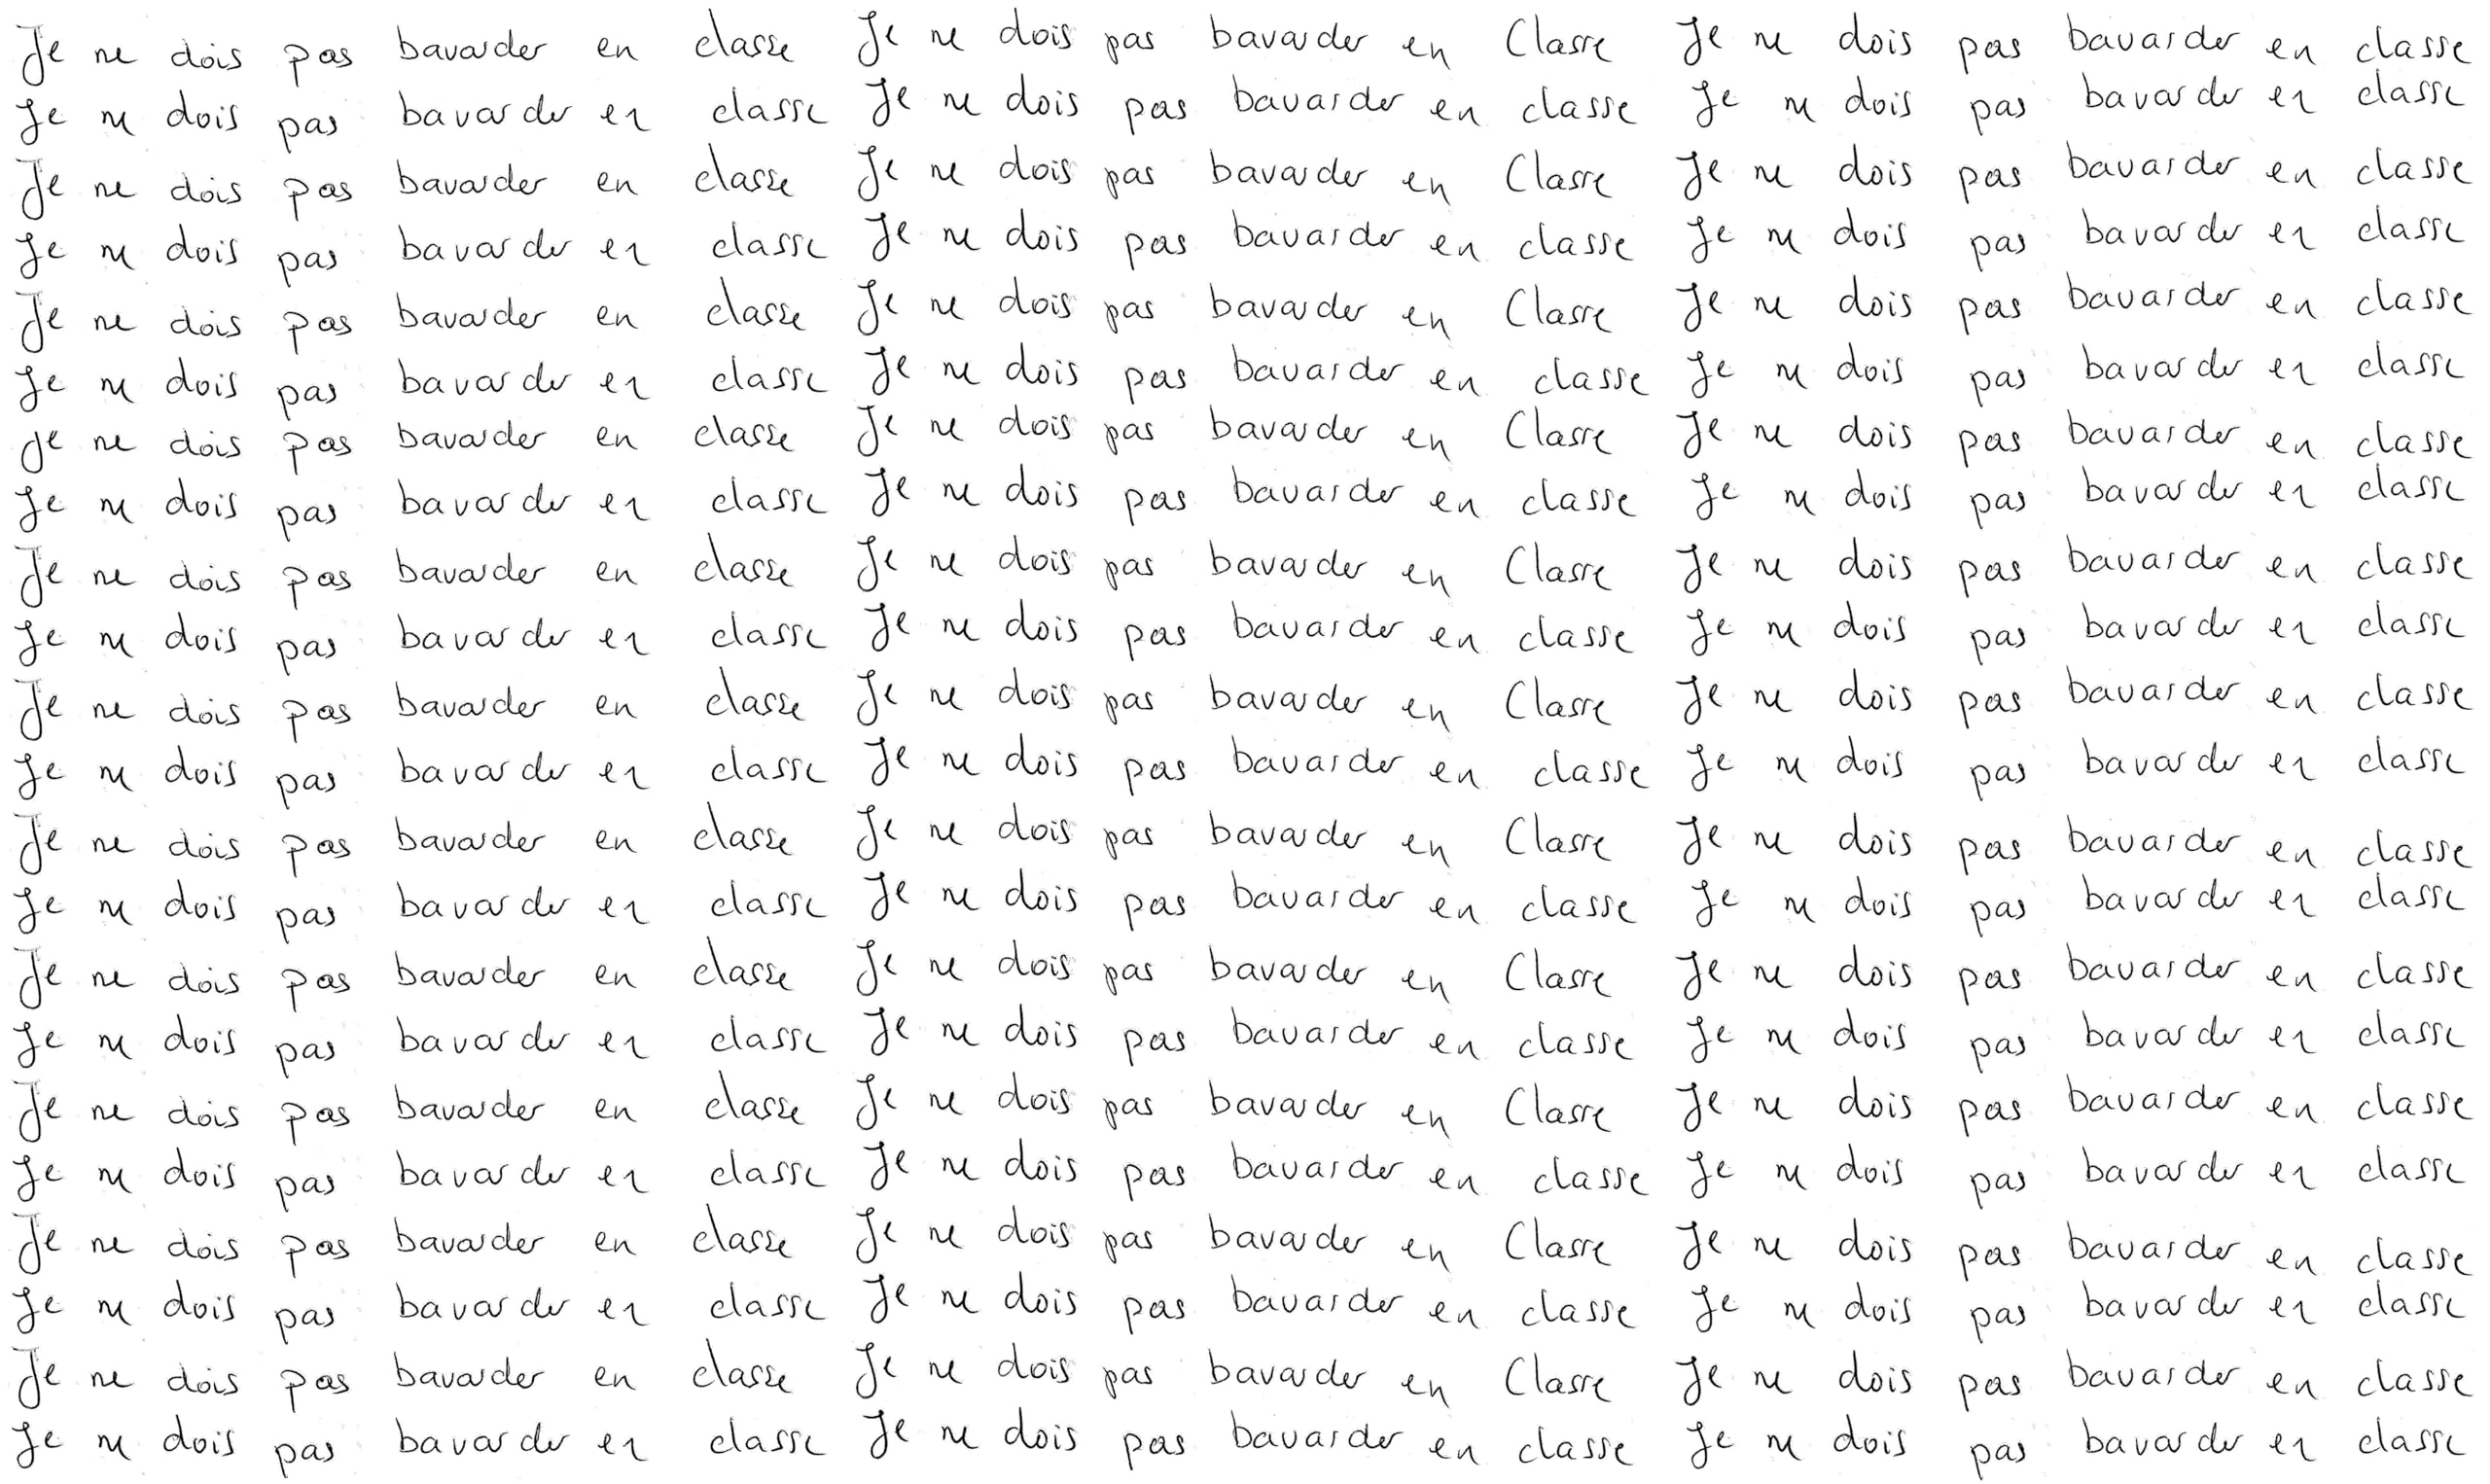 Je ne dois pas bavarder en classe Je ne dois pas bavarder en Classe Je ne dois pas bavarder en classe
Je ne dois pas bavarder en classe Je ne dois pas bavarder en classe Je ne dois pas bavarder en classe
Je ne dois pas bavarder en classe Je ne dois pas bavarder en Classe Je ne dois pas bavarder en classe
Je ne dois pas bavarder en classe Je ne dois pas bavarder en classe Je ne dois pas bavarder en classe
Je ne dois pas bavarder en classe Je ne dois pas bavarder en Classe Je ne dois pas bavarder en classe
Je ne dois pas bavarder en classe Je ne dois pas bavarder en classe Je ne dois pas bavarder en classe
Je ne dois pas bavarder en classe Je ne dois pas bavarder en Classe Je ne dois pas bavarder en classe
Je ne dois pas bavarder en classe Je ne dois pas bavarder en classe Je ne dois pas bavarder en classe
Je ne dois pas bavarder en classe Je ne dois pas bavarder en Classe Je ne dois pas bavarder en classe
Je ne dois pas bavarder en classe Je ne dois pas bavarder en classe Je ne dois pas bavarder en classe
Je ne dois pas bavarder en classe Je ne dois pas bavarder en Classe Je ne dois pas bavarder en classe
Je ne dois pas bavarder en classe Je ne dois pas bavarder en classe Je ne dois pas bavarder en classe
Je ne dois pas bavarder en classe Je ne dois pas bavarder en Classe Je ne dois pas bavarder en classe
Je ne dois pas bavarder en classe Je ne dois pas bavarder en classe Je ne dois pas bavarder en classe
Je ne dois pas bavarder en classe Je ne dois pas bavarder en Classe Je ne dois pas bavarder en classe
Je ne dois pas bavarder en classe Je ne dois pas bavarder en classe Je ne dois pas bavarder en classe
Je ne dois pas bavarder en classe Je ne dois pas bavarder en Classe Je ne dois pas bavarder en classe
Je ne dois pas bavarder en classe Je ne dois pas bavarder en classe Je ne dois pas bavarder en classe
Je ne dois pas bavarder en classe Je ne dois pas bavarder en Classe Je ne dois pas bavarder en classe
Je ne dois pas bavarder en classe Je ne dois pas bavarder en classe Je ne dois pas bavarder en classe
Je ne dois pas bavarder en classe Je ne dois pas bavarder en Classe Je ne dois pas bavarder en classe
Je ne dois pas bavarder en classe Je ne dois pas bavarder en classe Je ne dois pas bavarder en classe